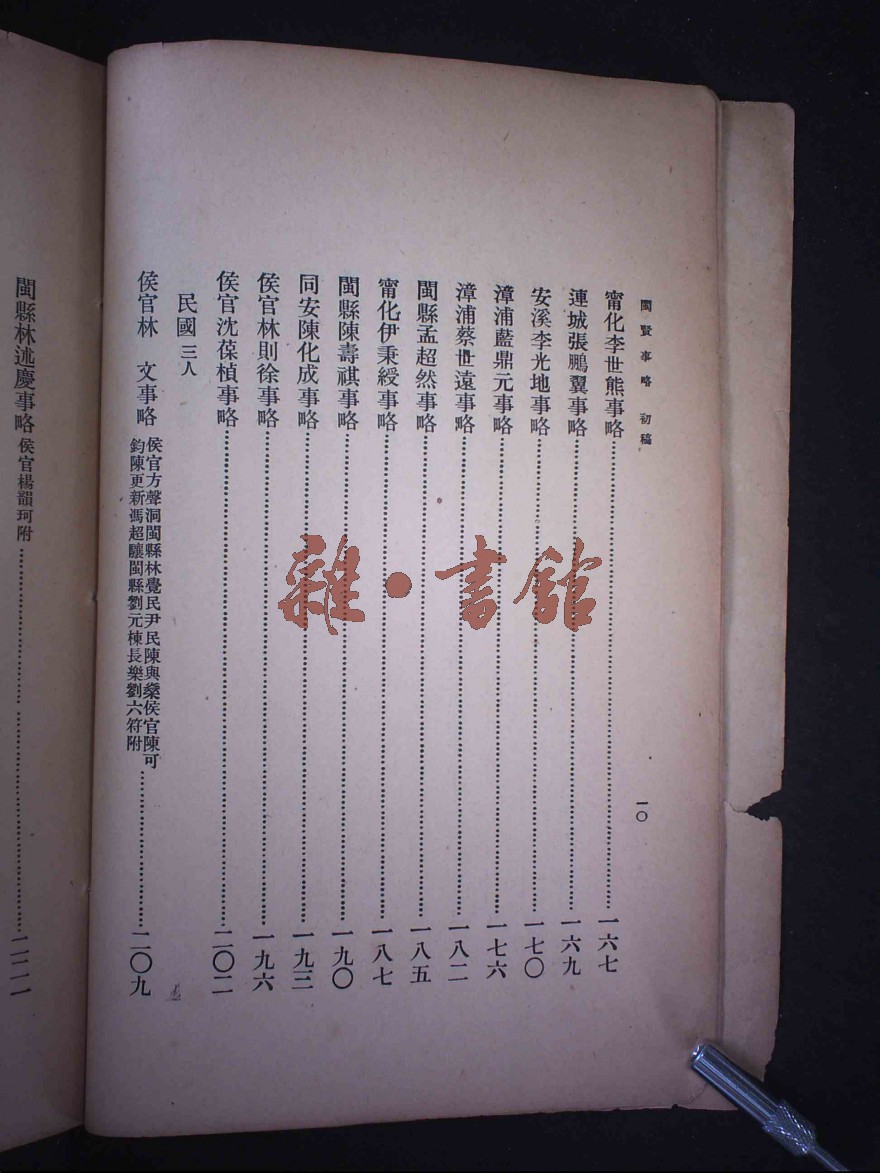 閩賢事略 初稿
一〇
甯化李世熊事略…………一六七
連城張鵬翼事略…………一六九
安溪李光地事略…………一七〇
漳浦藍鼎元事略…………一七六
漳浦蔡世遠事略…………一八二
閩縣孟超然事略…………一八五
甯化伊秉綬事略…………一八七
閩縣陳壽祺事略…………一九〇
同安陳化成事略…………一九三
侯官林則徐事略…………一九六
侯官沈葆楨事略…………二〇二
民國 三人
侯官林 文事略 侯官方聲洞閩縣林覺民尹民陳與燊侯官陳可
鈞陳更新馮超驤閩縣劉元棟長樂劉六符附…………二〇九
閩縣林述慶事略 侯官楊韻珂附…………二二一
雜·書館